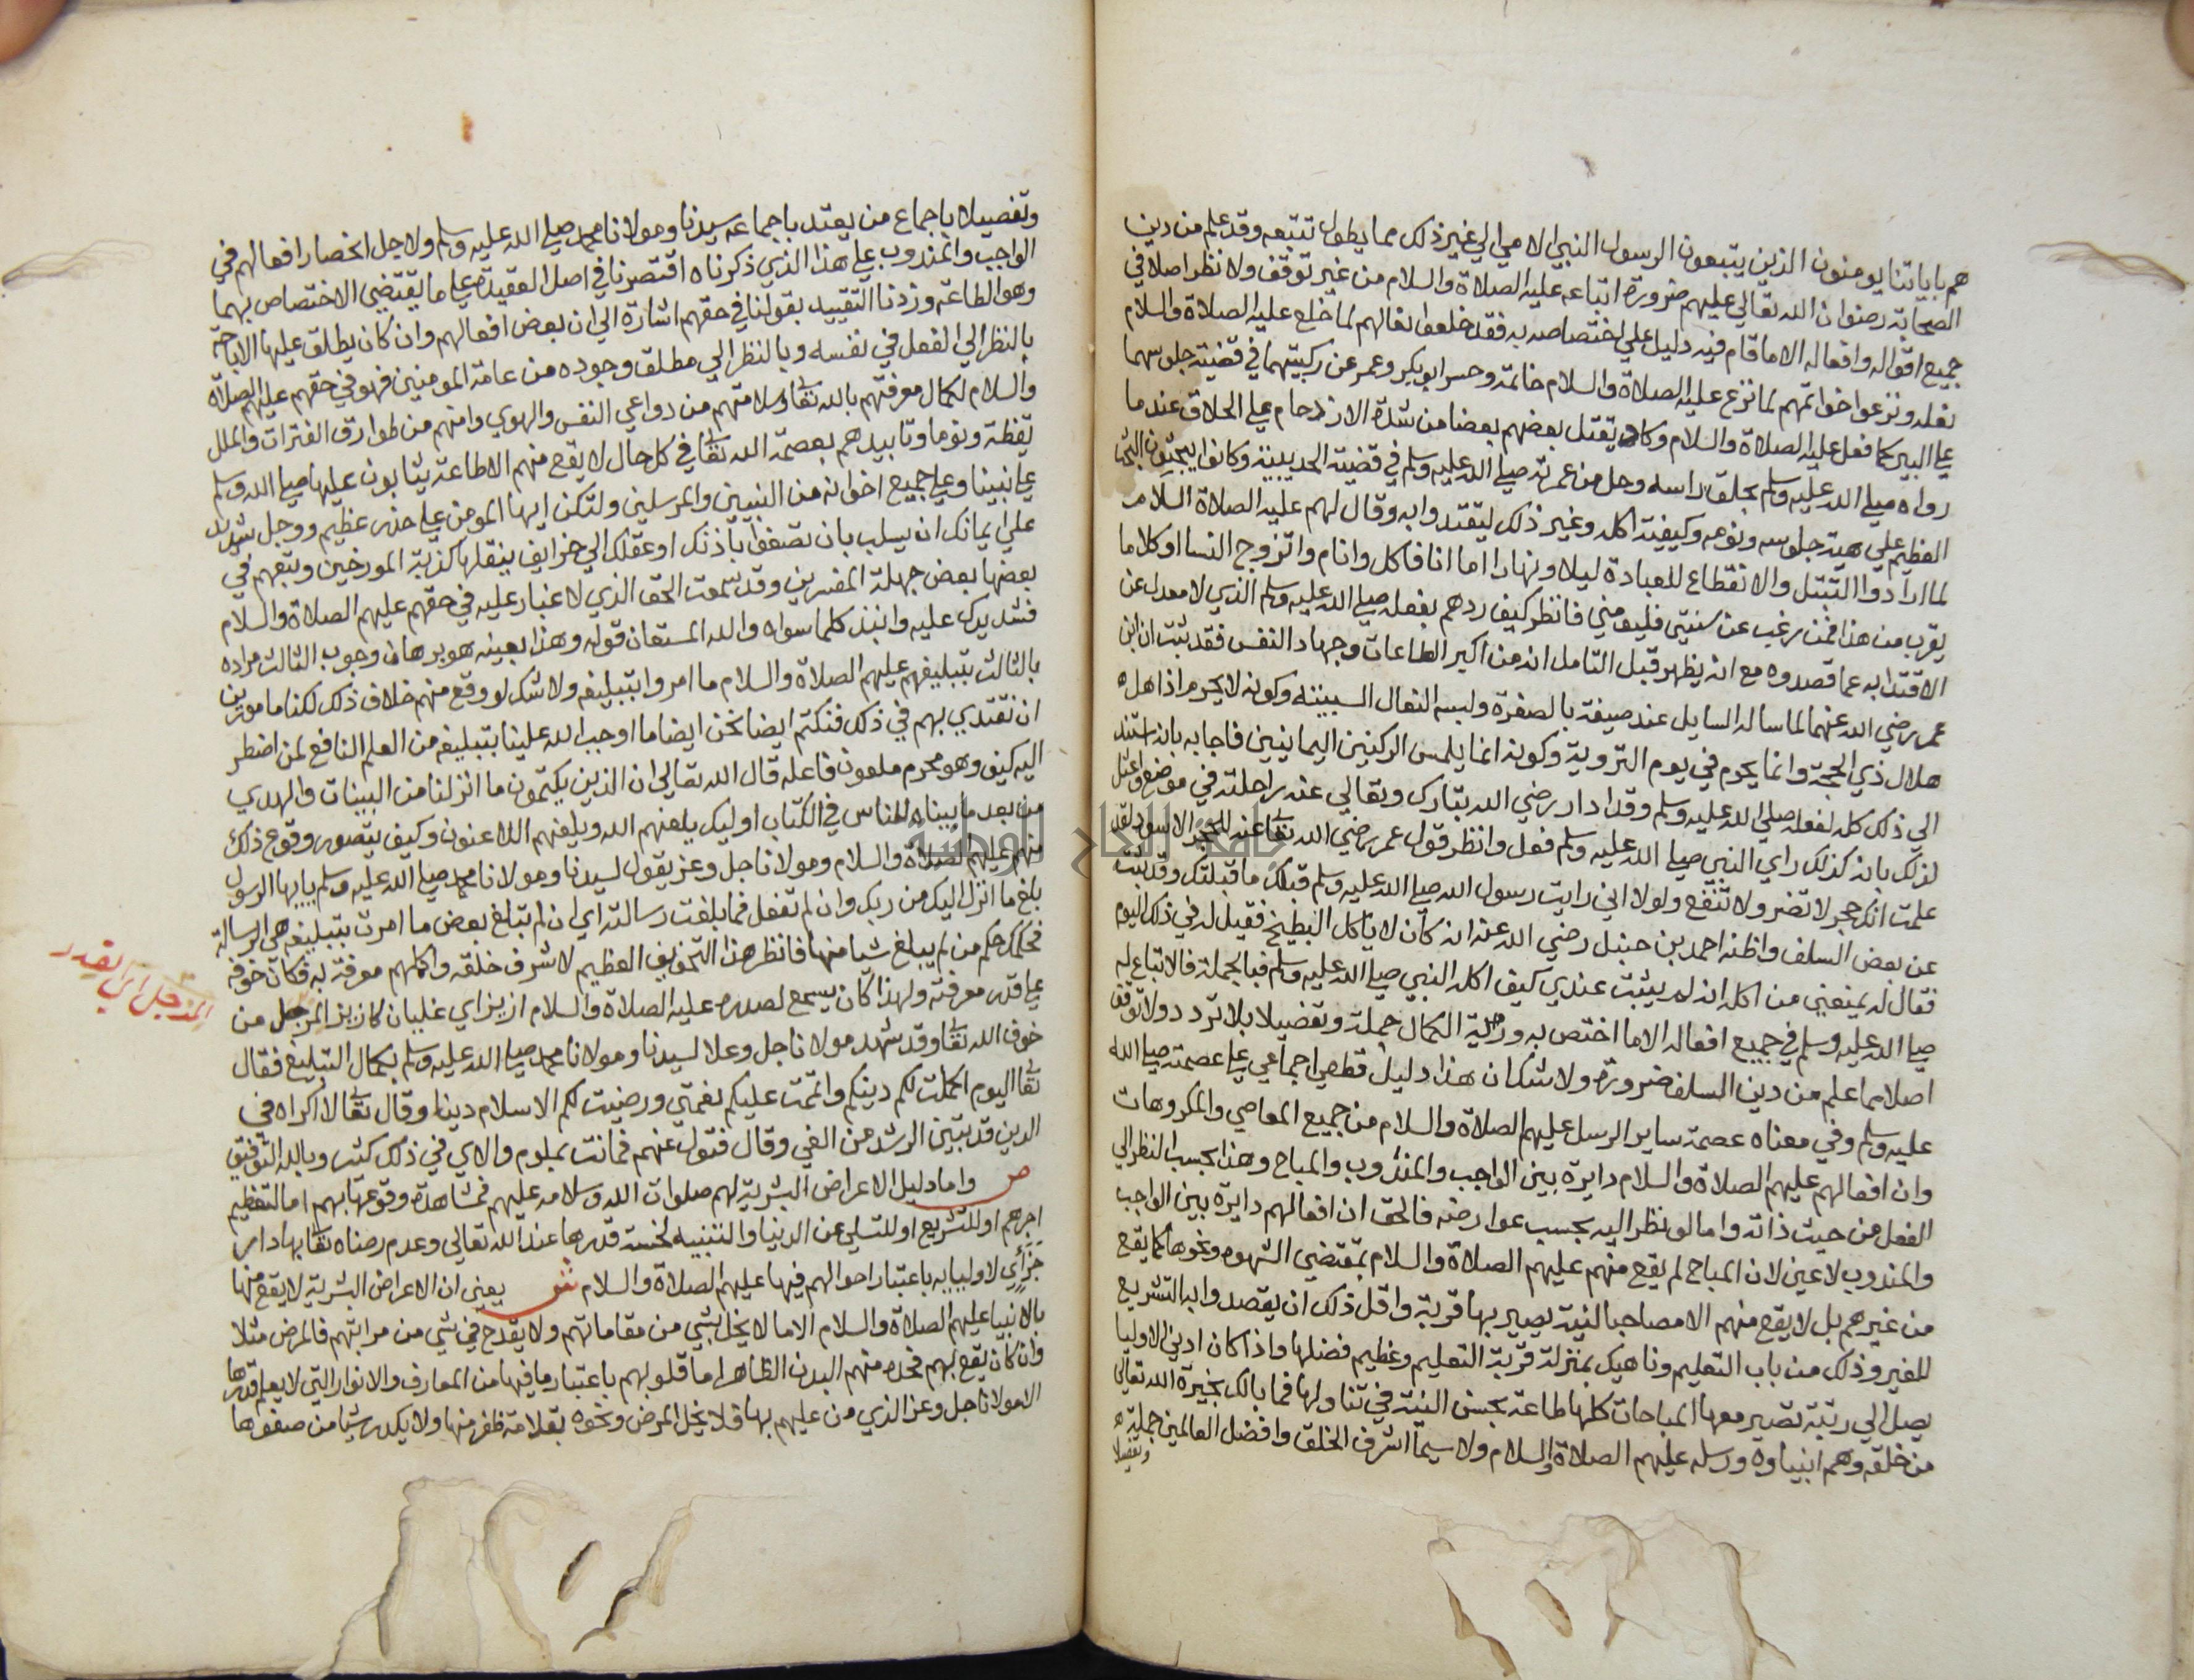 هم باياتنا يومنون الذين يتبعون الرسول النبي الامي الي غير ذلك مما يطول تتبعه وقد علم من دين
الصحابة رضوان الله تعالي عليهم ضرورة اتباعه عليه الصلاة والسلام من غير توقف ولا نظر اصلا في
جميع اقواله وافعاله الا ما قام فيه دليل علي اختصاصه به فقد خلعوا نعالهم لما خلع عليه الصلاة والسلام
نعله ونزعوا خواتمهم لما نزع عليه الصلاة والسلام خاتمه وحسر ابو بكر وعمر عن ركبتيهما في قضية جلوسهما
علي البير كما فعل عليه الصلاة والسلام وكاد يقتل بعضهم بعضا من شدة الازدحام علي الحلاق عندما
راوه صلي الله عليه وسلم يحلق راسه وحل من عمرته صلي الله عليه وسلم في قضية الحديبية وكانوا يبحثون البحث
العظيم علي هية جلوسه ونومه وكيفية اكله وغير ذلك ليقتدوا به وقال لهم عليه الصلاة السلام
لما ارادوا التبتل والانقطاع للعبادة ليلا ونهارا اما انا فاكل وانام واتزوج النسا او كلاما
يقرب من هذا فمن رغب عن سنتي فليس مني فانظر كيف ردهم بفعله صلي الله عليه وسلم الذي لا معدل عن
الاقتدا به عما قصدوه مع انه يظهر قبل التامل انه من اكبر الطاعات وجهاد النفس فقد ثبت ان ابن
عمر رضي الله عنهما لما ساله السايل عند صيغه بالصفرة ولبسه النعال السبتيه وكونه لا يحرم اذا هل
هلال ذي الحجة وانما يحرم في يوم التروية وكونه انما يلمس الركنين اليمانيين فاجابه بانه استند
الي ذلك كله لفعله صلي الله عليه وسلم وقد ادار رضي الله تبارك وتعالي عنه راحلته في موضع واعتل
لذلك بانه كذلك راي النبي صلي الله عليه وسلم فعل وانظر قول عمر رضي الله تعا عنه للحجر الاسود لقد
علمت انك حجر لا تضر ولا تنفع ولولا اني رايت رسول الله صلي الله عليه وسلم قبلك ما قبلتك وقد ثبت
عن بعض السلف واظنه احمد بن حنبل رضي الله عنه انه كان لا ياكل البطيخ فقيل له في ذلك اليوم
فقال له يمنعني من اكله انه لم يثبت عندي كيف اكله النبي صلي الله عليه وسلم فبالجملة فالاتباع له
صلي الله عليه وسلم في جميع افعاله الا ما اختص به ورؤية الكمال جملة وتفصيلا بلا تردد ولا توقف
اصلا مما علم من دين السلف ضرورة ولا شك ان هذا دليل قطعي اجماعي علي عصمته صلي الله
عليه وسلم وفي معناه عصمة ساير الرسل عليهم الصلاة والسلام من جميع المعاصي والمكروهات
وان افعالهم عليهم الصلاة والسلام دايرة بين الواجب والمندوب والمباح وهذا بحسب النظر الي
الفعل من حيث ذاته واما لو نظر اليه بحسب عوارضه فالحق ان افعالهم دايرة بين الواجب
والمندوب لا غير لان المباح لم يقع منهم عليهم الصلاة والسلام بمقتضي الشهوه ونحوها كما يقع
من غيرهم بل لا يقع منهم الا مصاحبا لنية يصير بها قربة واقل ذلك ان يقصدوا به التشريع
للغير وذلك من باب التعليم وناهيك بمنزلة قربة التعليم وعظيم فضلها واذا كان ادني الاوليا
يصل الي رتبة تصير معها المباحات كلها طاعة بحسن النية في تناولها فما بالك بخيرة الله تعالي
من خلقه وهم انبياوه ورسله عليهم الصلاة والسلام ولا سيما اشرف الخلق وافضل العالمين جملة
وتفصيلا
وتفصيلا باجماع من يعتد باجماعه سيدنا ومولانا محمد صلي الله عليه وسلم ولاجل انحصار افعالهم في
الواجب والمندوب علي هذا الذي ذكرناه اقتصرنا في اصل العقيدة علي ما يقتضي الاختصاص بهما
وهو الطاعة وزدنا التقييد بقولنا في حقهم اشارة الي ان بعض افعالهم وان كان يطلق عليها الاباحة
بالنظر الي الفعل في نفسه وبالنظر الي مطلق وجوده من عامة المومنين فهو في حقهم عليهم الصلاة
والسلام لكمال معرفتهم بالله تعا وسلامتهم من دواعي النفس والهوي وامنهم من طوارق الفترات والملل
يقظة ونوما وتاييدهم بعصمة الله تعا في كل حال لا يقع منهم الا طاعة يثابون عليها صلي الله وسلم
علي نبينا وعلي جميع اخوانه من النبيين والمرسلين ولتكن ايها المومن علي حذر عظيم ووجل شديد
علي ايمانك ان يسلب بان تصغي باذنك او عقلك الي خرايف ينقلها كذبة المورخين وتبعهم في
بعضها بعض جهلة المفسرين وقد سمعت الحق الذي لا غبار عليه في حقهم عليهم الصلاة والسلام
فشد يدك عليه وانبذ كلما سواه والله المستعان قوله وهذا بعينه هو برهان وجوب الثالث مراده
بالثالث تبليغهم عليهم الصلاة والسلام ما امروا بتبليغه ولا شك لو وقع منهم خلاف ذلك لكنا مامورين
ان نقتدي بهم في ذلك فنكتم ايضا نحن ايضا ما اوجب الله علينا بتبليغه من العلم النافع لمن اضطر
اليه كيف وهو محرم ملعون فاعله قال الله تعالي ان الذين يكتمون ما انزلنا من البينات والهدي
من بعد ما بيناه للناس في الكتاب اوليك يلعنهم الله ويلعنهم اللاعنون وكيف يتصور وقوع ذلك
منهم عليهم الصلاة والسلام ومولانا جل وعز يقول لسيدنا ومولانا محمد صلي الله عليه وسلم يايها الرسول
بلغ ما انزل اليك من ربك وان لم تفعل فما بلغت رسالته اي ان لم تبلغ بعض ما امرت بتبليغه هي الرسالة
فحكمك حكم من لم يبلغ شيا منها فانظر هذا التخويف العظيم لاشرف خلقه واكملهم معرفة به فكان خوفه
علي قدر معرفته ولهذا كان يسمع لصدره عليه الصلاة والسلام ازيز اي غليان كازيز المرجل من
المرجل اي القدر
خوف الله تعا وقد شهد مولانا جل وعلا لسيدنا ومولانا محمد صلي الله عليه وسلم بكمال التبليغ فقال
تعا اليوم اكملت لكم دينكم واتممت عليكم نعمتي ورضيت لكم الاسلام دينا وقال تعا لا اكراه في
الدين قد تبين الرشد من الغي وقال فتول عنهم فما انت بملوم والاي في ذلك كثير وبالله التوفيق
ص واما دليل الاعراض البشرية لهم صلوات الله وسلامه عليهم فمشاهدة وقوعها بهم اما لتعظيم
اجرهم او للتشريع او للتسلي عن الدنيا والتنبيه لخسة قدرها عند الله تعالي وعدم رضاه تعا بها دار
جزاي لاوليايه باعتبار احوالهم فيها عليهم الصلاة والسلام ش يعني ان الاعراض البشرية لا يقع منها
بالانبيا عليهم الصلاة والسلام الا ما لا يخل بشي من مقاماتهم ولا يقدح في شي من مراتبهم فالمرض مثلا
وان كان يقع بهم فحده منهم البدن الظاهر اما قلوبهم باعتبار ما فيها من المعارف والانوار التي لا يعلم قدرها
الا مولانا جل وعز الذي من عليهم بها فلا يخل المرض ونحوه بقلامة ظفر منها ولا يكدر شيا من صفوها
جامعة النجاح الوطنية